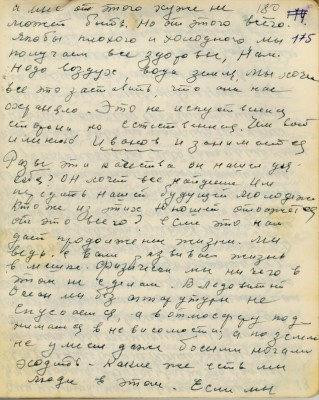 а мы от этого хуже не 180
может быть. Но от этого всего. 174
чтобы плохого и холодного мы 175
получаем все здоровье, Нам
Надо воздух, вода земля. Мы хочем
все это заставить что они нас
охраняло. Это не искуственная
сторона но естественная. Им вот
именно Иванов и занимается
Разве эти качества он нашел для
себя? Он хочет все найденное Им
передать нашей будущей молодежи
Кто же из этих юношей откажется
от это всего? если это нам
дает продолжение жизни. Мы
ведь с Вами развивая жизнь
в мыслях физически мы ничего в
этом не сделали. В Ледовитый
Океан мы без аппаратуры не
Спускаемся, а в атмосферу под
нимаемся в невесомости, а по земле
не умеем даже босыми ногами
ходить. Какие же есть мы
люди в этом. Если мы